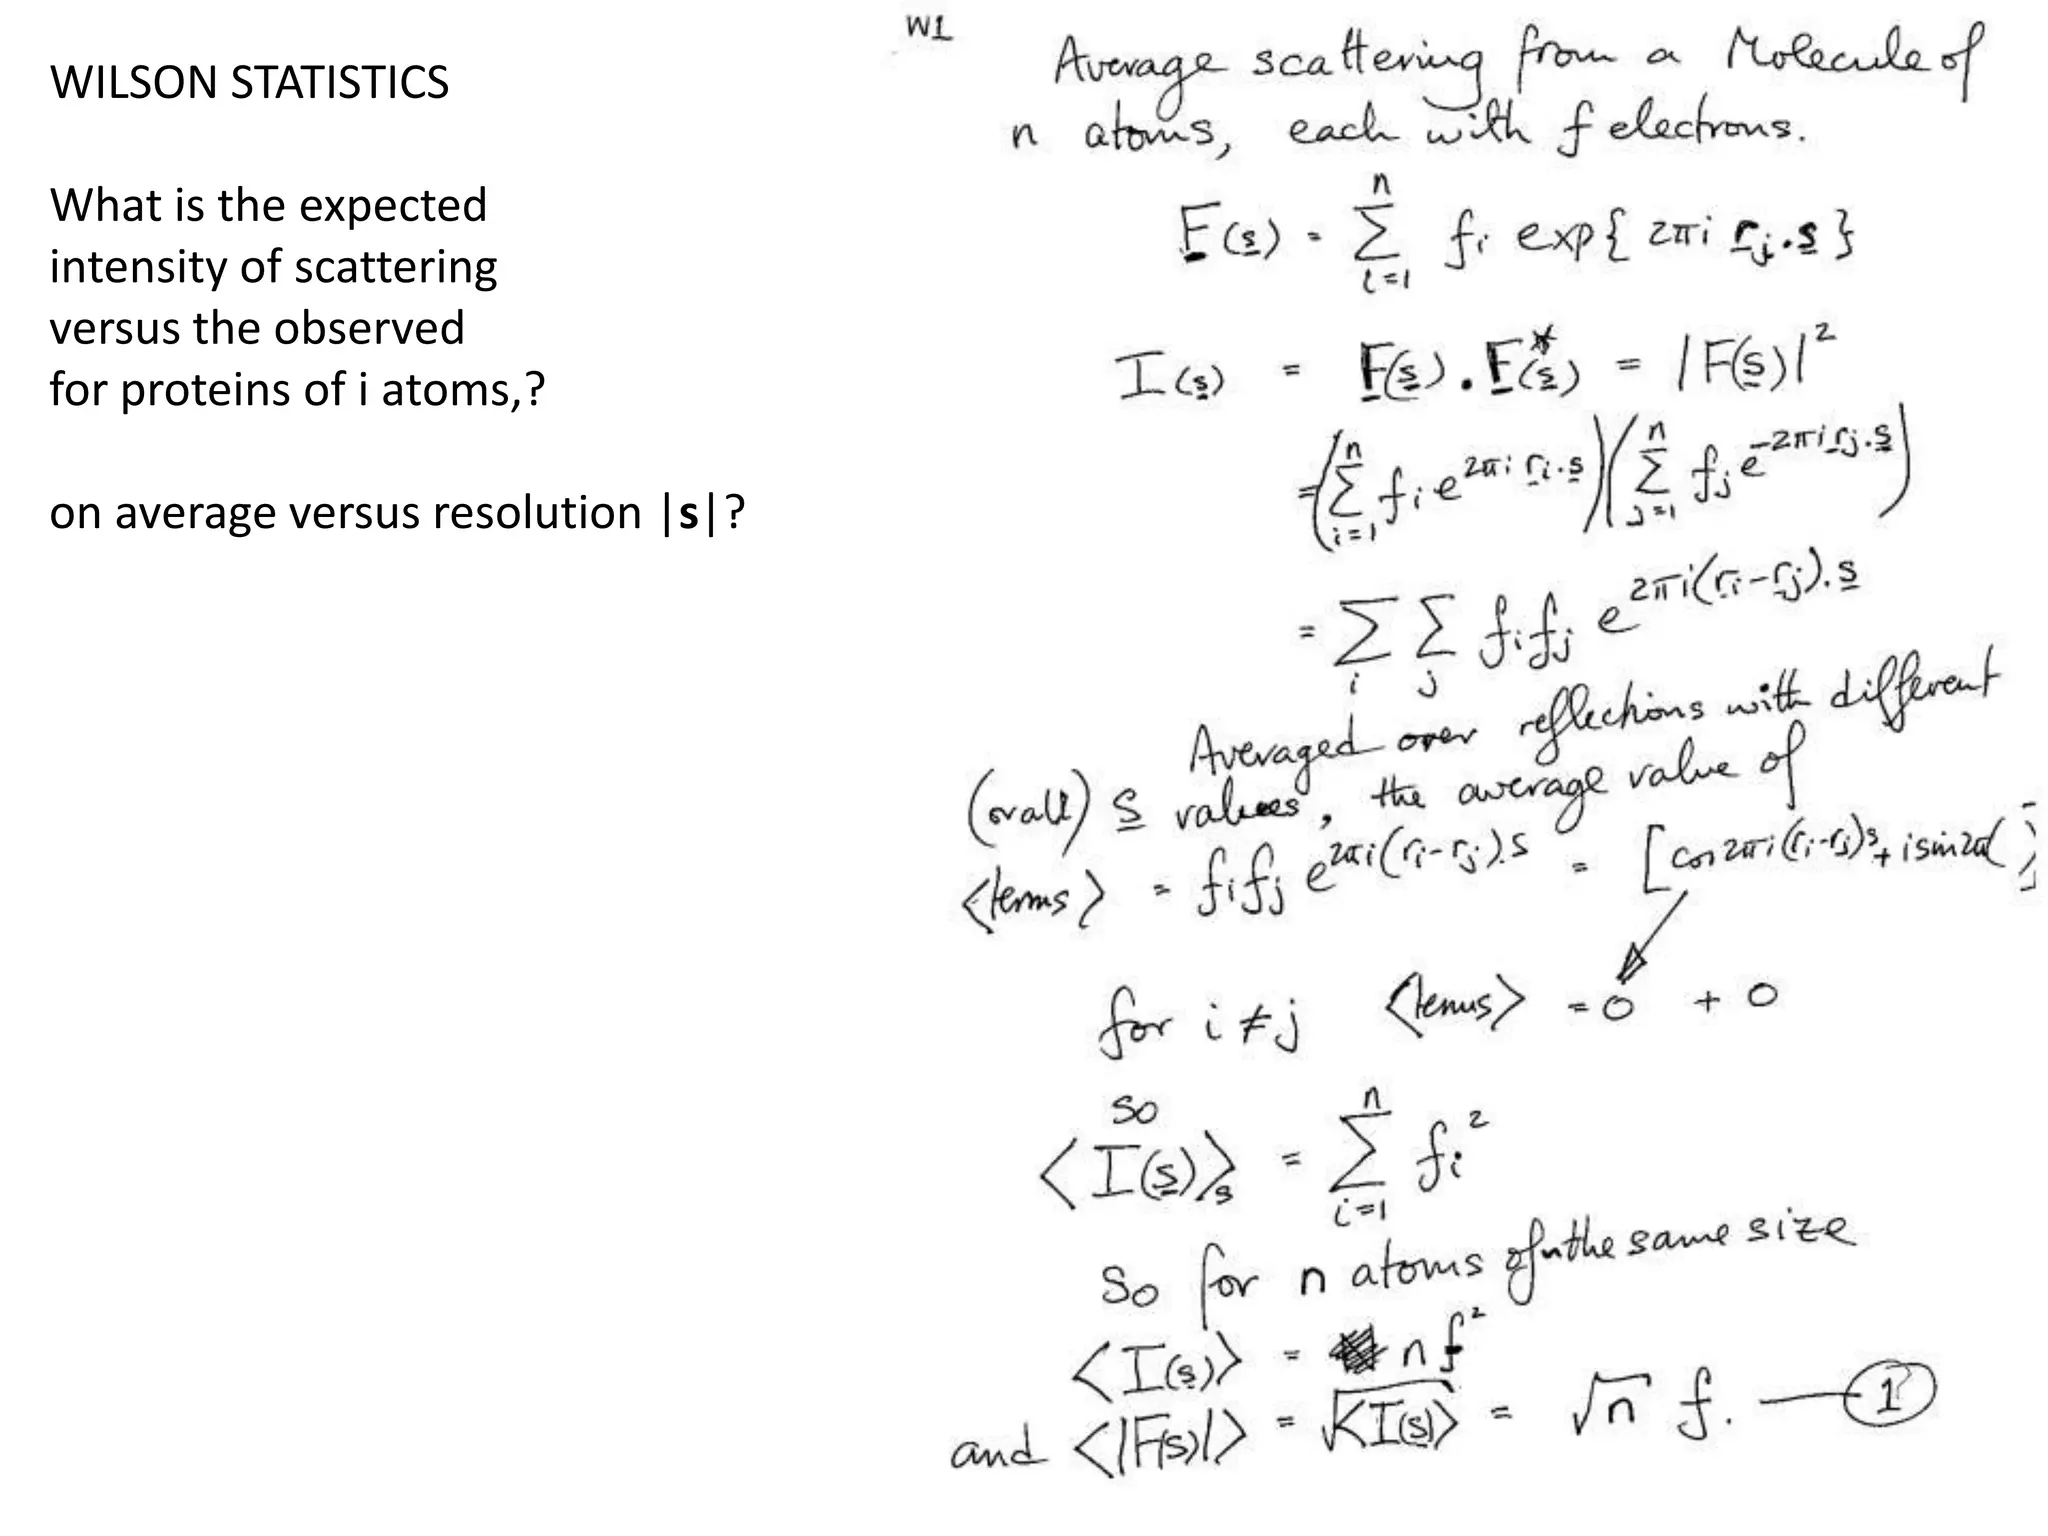 WILSON STATISTICS
What is the expected
intensity of scattering
versus the observed
for proteins of i atoms,?
on average versus resolution |s|?
W1
Average scattering from a Molecule of
n atoms, each with f electrons.
F(s) = Σ_{i=1}^{n} f_i exp{ 2πi r_j.s }
I(s) = F(s) . F*(s) = |F(s)|²
= (Σ_{i=1}^{n} f_i e^{2πi r_i.s})(Σ_{j=1}^{n} f_j e^{-2πi r_j.s})
= Σ_i Σ_j f_i f_j e^{2πi(r_i-r_j).s}
Averaged over reflections with different
(or all) s values, the average value of
<terms> = f_i f_j e^{2πi(r_i-r_j).s} = [cos 2πi(r_i-r_j)s + i sin 2π( )]
for i ≠ j <terms> = 0 + 0
so
<I(s)>_s = Σ_{i=1}^{n} f_i²
So for n atoms of the same size
<I(s)> = n f²
and <|F(s)|> = √<I(s)> = √n f. — ①